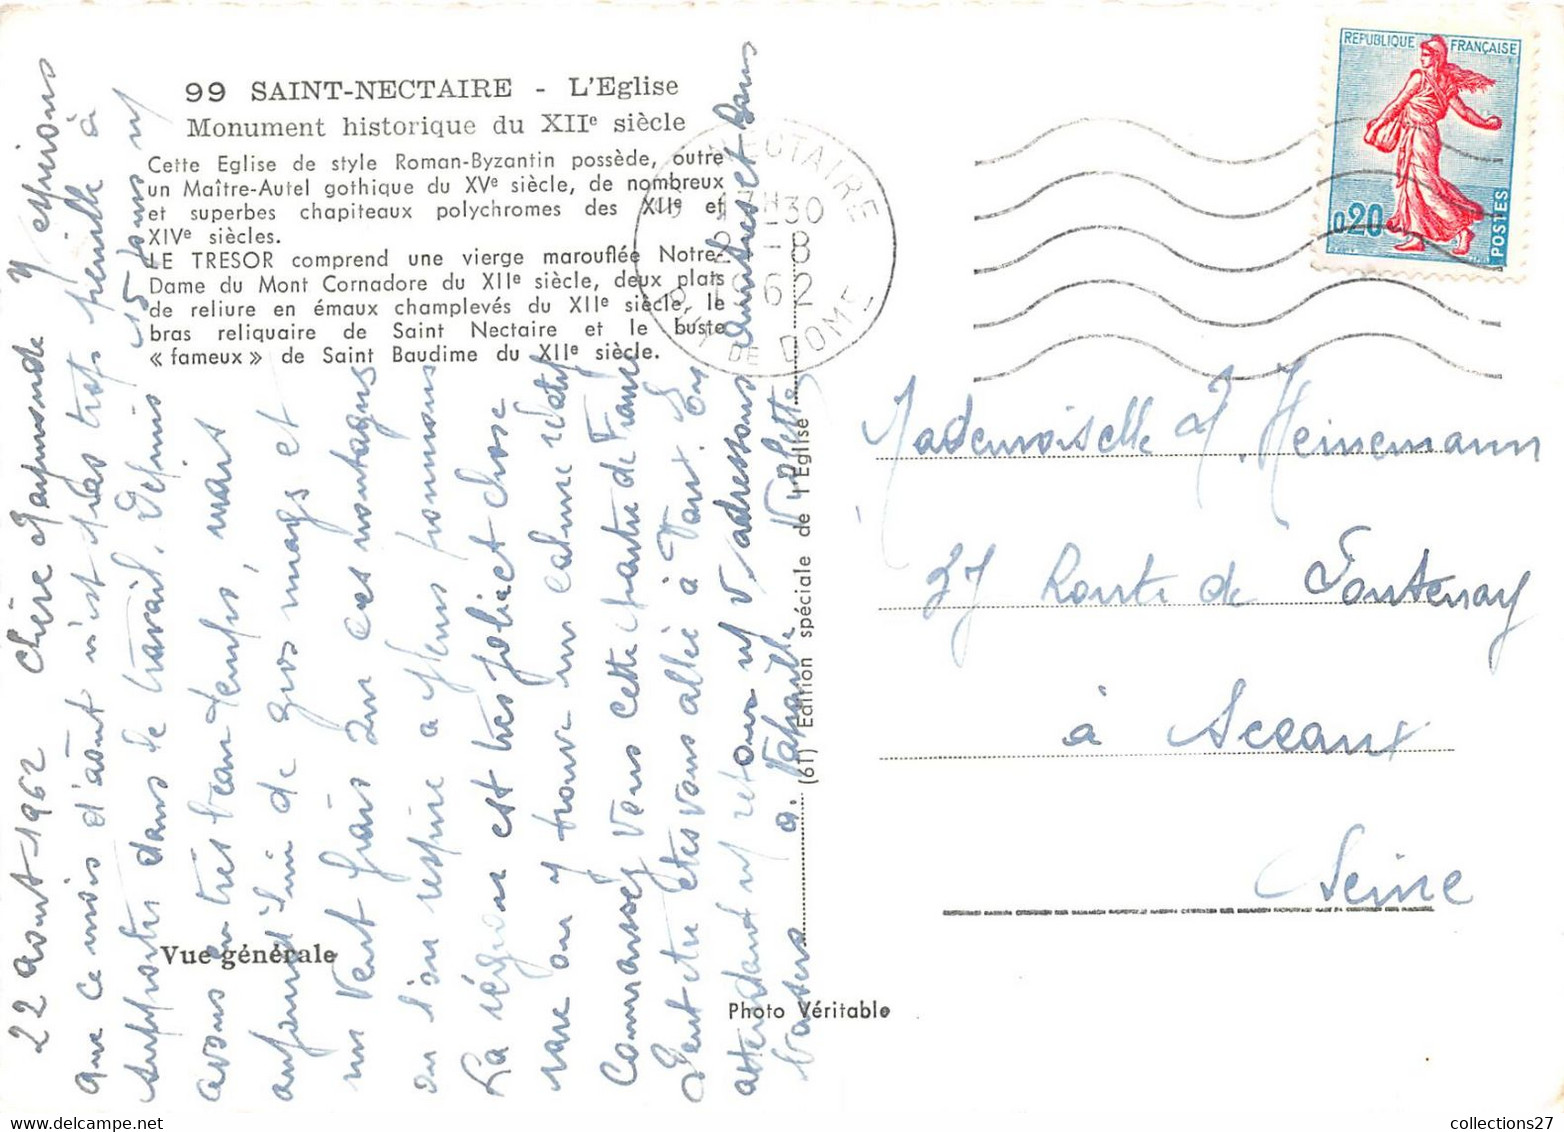 99 SAINT-NECTAIRE - L'Eglise
Monument historique du XIIe siècle
Cette Eglise de style Roman-Byzantin possède, outre
un Maître-Autel gothique du XVe siècle, de nombreux
et superbes chapiteaux polychromes des XIIe et
XIVe siècles.
LE TRESOR comprend une vierge marouflée Notre-
Dame du Mont Cornadore du XIIe siècle, deux plats
de reliure en émaux champlevés du XIIe siècle, le
bras reliquaire de Saint Nectaire et le buste
« fameux » de Saint Baudime du XIIe siècle.
Vue générale
Photo Véritable
(61) Edition spéciale de l'Eglise
NECTAIRE
30
-8
1962
PUY DE DOME
REPUBLIQUE FRANÇAISE
0,20
POSTES
22 août 1962 Chère Raymonde J'espérons
que ce mois d'août n'est pas très pénible à
supporter dans le travail. Depuis 15 jours ns
avons un très beau temps, mais
aujourd'hui de gros nuages et
un vent frais sur ces montagnes
où l'on respire à pleins poumons
La région est très jolie et chose
rare on y trouve un calme relatif
Connaissez vous cette partie de France
Peut être êtes vous allée à
attendant ns retour ns v. adressons
baisers
Mademoiselle J. Heinemann
27 Route de Fontenay
à Sceaux
Seine
collections27